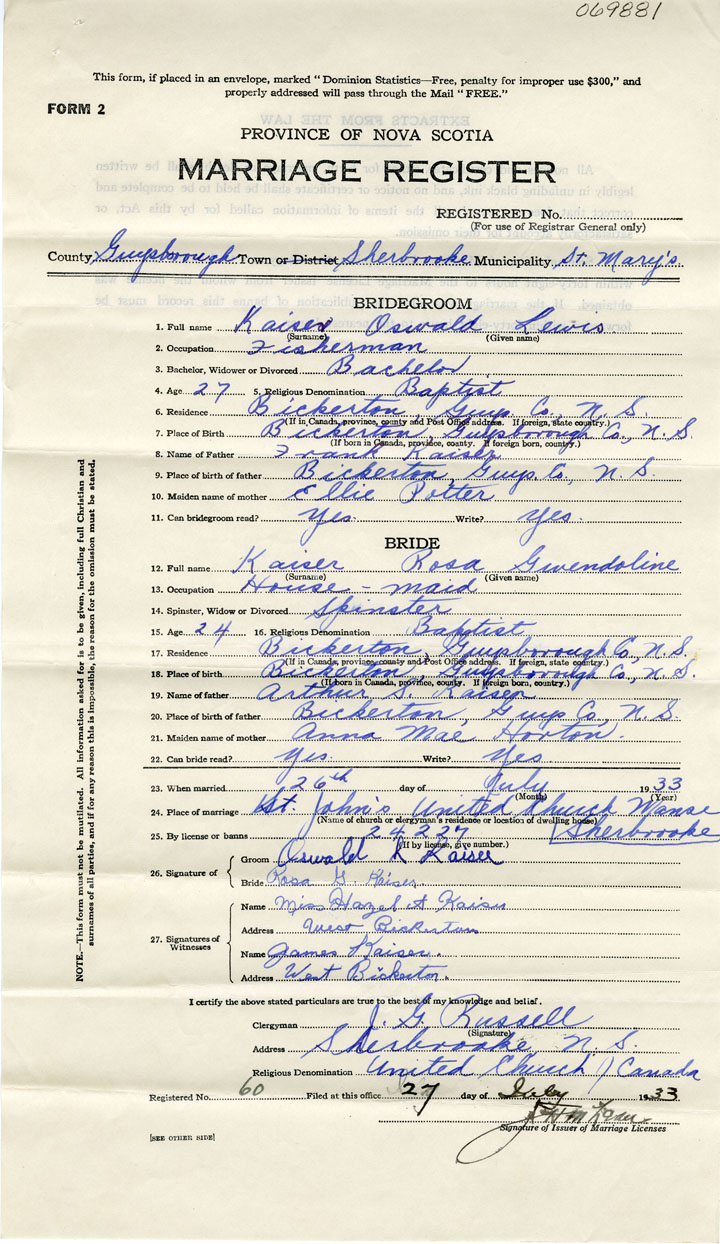 069881
This form, if placed in an envelope, marked "Dominion Statistics—Free, penalty for improper use $300," and
properly addressed will pass through the Mail "FREE."
FORM 2
PROVINCE OF NOVA SCOTIA
MARRIAGE REGISTER
REGISTERED No.
(For use of Registrar General only)
County Guysborough Town or District Sherbrooke Municipality St. Mary's
BRIDEGROOM
1. Full name Kaiser Oswald Lewis
(Surname) (Given name)
2. Occupation Fisherman
3. Bachelor, Widower or Divorced Bachelor
4. Age 27 5. Religious Denomination Baptist
6. Residence Bickerton, Guys. Co., N. S.
(If in Canada, province, county and Post Office address. If foreign, state country.)
7. Place of Birth Bickerton, Guysborough Co., N. S.
(If born in Canada, province, county. If foreign born, country.)
8. Name of Father Frank Kaiser
9. Place of birth of father Bickerton, Guys. Co., N. S.
10. Maiden name of mother Ellie Potter
11. Can bridegroom read? Yes. Write? Yes.
BRIDE
12. Full name Kaiser Rosa Gwendoline
(Surname) (Given name)
13. Occupation House-maid
14. Spinster, Widow or Divorced Spinster
15. Age 24 16. Religious Denomination Baptist
17. Residence Bickerton, Guysborough Co, N. S.
(If in Canada, province, county and Post Office address. If foreign, state country.)
18. Place of birth Bickerton, Guysborough Co., N. S.
(If born in Canada, province, county. If foreign born, country.)
19. Name of father Arthur S. Kaiser
20. Place of birth of father Bickerton, Guys Co., N. S.
21. Maiden name of mother Anna Mae Horton.
22. Can bride read? Yes. Write? Yes
23. When married 26th day of July 1933
(Month) (Year)
24. Place of marriage St. John's United Church Manse
(Name of church or clergyman's residence or location of dwelling house)
Sherbrooke
25. By license or banns 24227
(If by license, give number.)
26. Signature of
Groom Oswald L Kaiser
Bride Rosa G. Kaiser
27. Signatures of Witnesses
Name Miss Hazel A Kaiser
Address West Bickerton
Name James Kaiser.
Address West Bickerton.
NOTE.—This form must not be mutilated. All information asked for is to be given, including full Christian and
surnames of all parties, and if for any reason this is impossible, the reason for the omission must be stated.
I certify the above stated particulars are true to the best of my knowledge and belief.
Clergyman J. G. Russell
(Signature)
Address Sherbrooke N. S.
Religious Denomination United Church / Canada
Registered No. 60 Filed at this office 27 day of July 1933
Signature of Issuer of Marriage Licenses
[SEE OTHER SIDE]